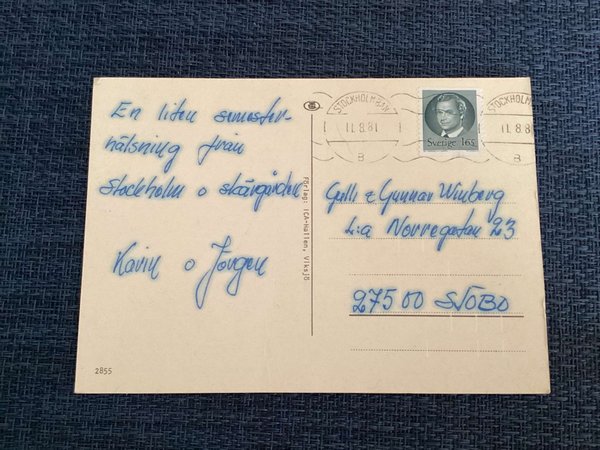 En liten semester-
hälsning från
Stockholm o skärgården
Karin o Jörgen
2855
Förlag: ICA-Hallen, Viksjö
STOCKHOLM BAN
11.8.81
B
Sverige 165
STOCKHOLM
11.8.8
B
Gulli & Gunnar Winberg
L:a Norregatan 23
275 00 SJÖBO